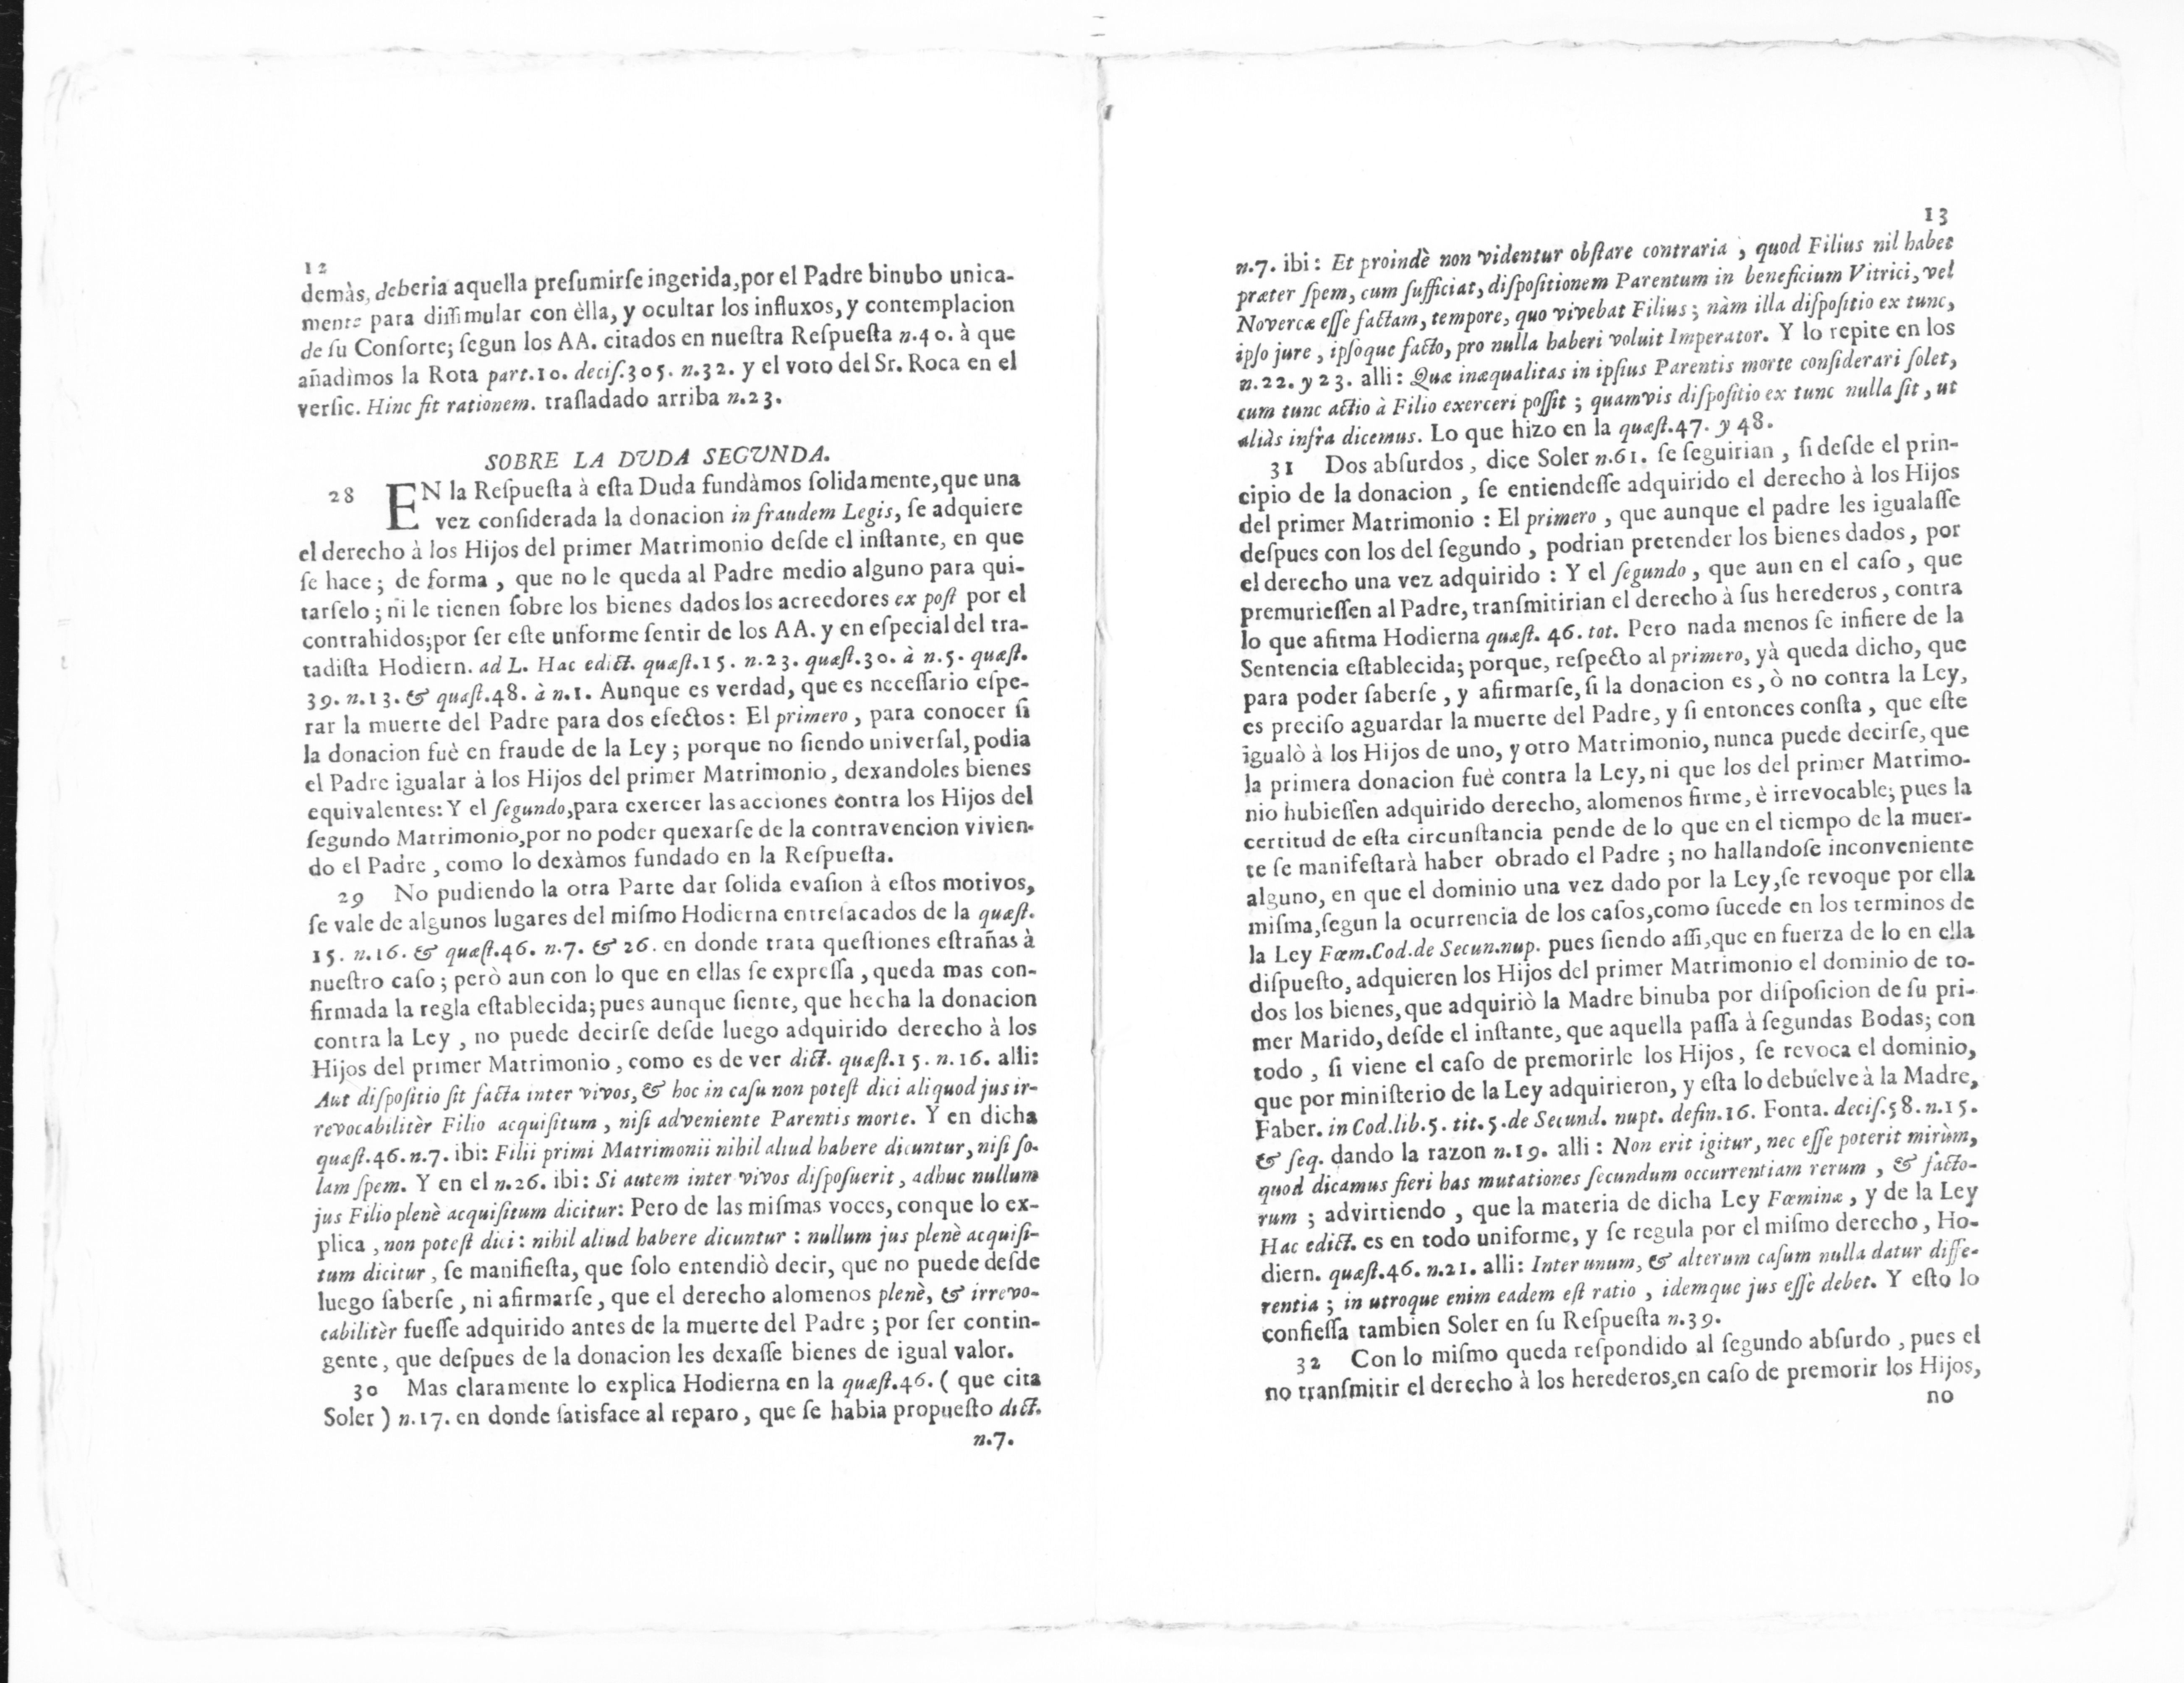 12
demàs, deberia aquella preſumirſe ingerida,por el Padre binubo unica-
mente para diſſimular con èlla, y ocultar los influxos, y contemplacion
de ſu Conſorte; ſegun los AA. citados en nueſtra Reſpueſta n.40. à que
añadìmos la Rota part.10. deciſ.305. n.32. y el voto del Sr. Roca en el
verſic. Hinc fit rationem. traſladado arriba n.23.
SOBRE LA DVDA SEGVNDA.
28 EN la Reſpueſta à eſta Duda fundàmos ſolidamente,que una
vez conſiderada la donacion in fraudem Legis, ſe adquiere
el derecho à los Hijos del primer Matrimonio deſde el inſtante, en que
ſe hace; de forma, que no le queda al Padre medio alguno para qui-
tarſelo; ni le tienen ſobre los bienes dados los acreedores ex poſt por el
contrahidos;por ſer eſte unforme ſentir de los AA. y en eſpecial del tra-
tadiſta Hodiern. ad L. Hac edict. quæſt.15. n.23. quæſt.30. à n.5. quæſt.
39. n.13. & quæſt.48. à n.1. Aunque es verdad, que es neceſſario eſpe-
rar la muerte del Padre para dos efectos: El primero, para conocer ſi
la donacion fuè en fraude de la Ley; porque no ſiendo univerſal, podia
el Padre igualar à los Hijos del primer Matrimonio, dexandoles bienes
equivalentes: Y el ſegundo,para exercer las acciones contra los Hijos del
ſegundo Matrimonio,por no poder quexarſe de la contravencion vivien-
do el Padre, como lo dexàmos fundado en la Reſpueſta.
29 No pudiendo la otra Parte dar ſolida evaſion à eſtos motivos,
ſe vale de algunos lugares del miſmo Hodierna entreſacados de la quæſt.
15. n.16. & quæſt.46. n.7. & 26. en donde trata queſtiones eſtrañas à
nueſtro caſo; però aun con lo que en ellas ſe expreſſa, queda mas con-
firmada la regla eſtablecida; pues aunque ſiente, que hecha la donacion
contra la Ley, no puede decirſe deſde luego adquirido derecho à los
Hijos del primer Matrimonio, como es de ver dict. quæſt.15. n.16. alli:
Aut diſpoſitio ſit facta inter vivos, & hoc in caſu non poteſt dici aliquod jus ir-
revocabilitèr Filio acquiſitum, niſi adveniente Parentis morte. Y en dicha
quæſt.46.n.7. ibi: Filii primi Matrimonii nihil aliud habere dicuntur, niſi ſo-
lam ſpem. Y en el n.26. ibi: Si autem inter vivos diſpoſuerit, adhuc nullum
jus Filio plenè acquiſitum dicitur: Pero de las miſmas voces, conque lo ex-
plica, non poteſt dici: nihil aliud habere dicuntur: nullum jus plenè acquiſi-
tum dicitur, ſe manifieſta, que ſolo entendiò decir, que no puede deſde
luego ſaberſe, ni afirmarſe, que el derecho alomenos plenè, & irrevo-
cabilitèr fueſſe adquirido antes de la muerte del Padre; por ſer contin-
gente, que deſpues de la donacion les dexaſſe bienes de igual valor.
30 Mas claramente lo explica Hodierna en la quæſt.46. ( que cita
Soler ) n.17. en donde ſatisface al reparo, que ſe habia propueſto dict.
n.7.
13
n.7. ibi: Et proindè non videntur obſtare contraria, quod Filius nil habet
præter ſpem, cum ſufficiat, diſpoſitionem Parentum in beneficium Vitrici, vel
Novercæ eſſe factam, tempore, quo vivebat Filius; nàm illa diſpoſitio ex tunc,
ipſo jure, ipſoque facto, pro nulla haberi voluit Imperator. Y lo repite en los
n.22. y 23. alli: Quæ inæqualitas in ipſius Parentis morte conſiderari ſolet,
cum tunc actio à Filio exerceri poſſit; quamvis diſpoſitio ex tunc nulla ſit, ut
aliàs infra dicemus. Lo que hizo en la quæſt.47. y 48.
31 Dos abſurdos, dice Soler n.61. ſe ſeguirian, ſi deſde el prin-
cipio de la donacion, ſe entiendeſſe adquirido el derecho à los Hijos
del primer Matrimonio: El primero, que aunque el padre les igualaſſe
deſpues con los del ſegundo, podrian pretender los bienes dados, por
el derecho una vez adquirido: Y el ſegundo, que aun en el caſo, que
premurieſſen al Padre, tranſmitirian el derecho à ſus herederos, contra
lo que afirma Hodierna quæſt. 46. tot. Pero nada menos ſe infiere de la
Sentencia eſtablecida; porque, reſpecto al primero, yà queda dicho, que
para poder ſaberſe, y afirmarſe, ſi la donacion es, ò no contra la Ley,
es preciſo aguardar la muerte del Padre, y ſi entonces conſta, que eſte
igualò à los Hijos de uno, y otro Matrimonio, nunca puede decirſe, que
la primera donacion fuè contra la Ley, ni que los del primer Matrimo-
nio hubieſſen adquirido derecho, alomenos firme, è irrevocable; pues la
certitud de eſta circunſtancia pende de lo que en el tiempo de la muer-
te ſe manifeſtarà haber obrado el Padre; no hallandoſe inconveniente
alguno, en que el dominio una vez dado por la Ley,ſe revoque por ella
miſma,ſegun la ocurrencia de los caſos,como ſucede en los terminos de
la Ley Fœm.Cod.de Secun.nup. pues ſiendo aſſi,que en fuerza de lo en ella
diſpueſto, adquieren los Hijos del primer Matrimonio el dominio de to-
dos los bienes, que adquiriò la Madre binuba por diſpoſicion de ſu pri-
mer Marido, deſde el inſtante, que aquella paſſa à ſegundas Bodas; con
todo, ſi viene el caſo de premorirle los Hijos, ſe revoca el dominio,
que por miniſterio de la Ley adquirieron, y eſta lo debuelve à la Madre,
Faber. in Cod.lib.5. tit.5.de Secund. nupt. defin.16. Fonta. deciſ.58. n.15.
& ſeq. dando la razon n.19. alli: Non erit igitur, nec eſſe poterit mirùm,
quod dicamus fieri has mutationes ſecundum occurrentiam rerum, & facto-
rum; advirtiendo, que la materia de dicha Ley Fœminæ, y de la Ley
Hac edict. es en todo uniforme, y ſe regula por el miſmo derecho, Ho-
diern. quæſt.46. n.21. alli: Inter unum, & alterum caſum nulla datur diffe-
rentia; in utroque enim eadem eſt ratio, idemque jus eſſe debet. Y eſto lo
confieſſa tambien Soler en ſu Reſpueſta n.39.
32 Con lo miſmo queda reſpondido al ſegundo abſurdo, pues el
no tranſmitir el derecho à los herederos,en caſo de premorir los Hijos,
no